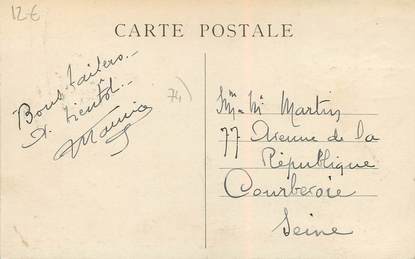 12 €
CARTE POSTALE
Bons baisers._
A bientôt._
Maurice
74)
Mm. Mr Martin
77 Avenue de la
République
Courbevoie
Seine